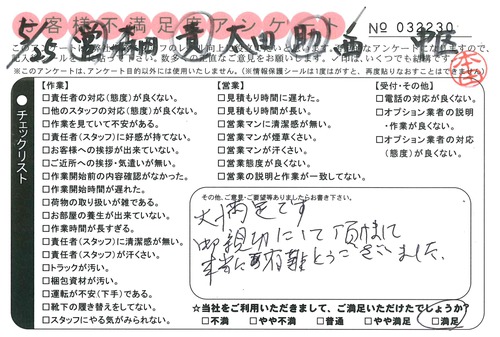 お客様不満足度アンケート
№ 033230
5/25
※このアンケートは、アンケート目的以外には使用しません。(※情報保護シールは1度はがすと、再度貼りなおすことはできません)
チェックリスト
【作業】
□責任者の対応(態度)が良くない。
□他のスタッフの対応(態度)が良くない。
□作業を見ていて不安がある。
□責任者(スタッフ)に好感が持てない。
□お客様への挨拶が出来ていない。
□ご近所への挨拶・気遣いが無い。
□作業開始前の内容確認がなかった。
□作業開始時間が遅れた。
□荷物の取り扱いが雑である。
□お部屋の養生が出来ていない。
□作業時間が長すぎる。
□責任者(スタッフ)に清潔感が無い。
□責任者(スタッフ)が汗くさい。
□トラックが汚い。
□梱包資材が汚い。
□運転が不安(下手)である。
□靴下の履き替えをしてない。
□スタッフにやる気がみられない。
【営業】
□見積もり時間に遅れた。
□見積もり時間が長い。
□営業マンに清潔感が無い。
□営業マンが煙草くさい。
□営業マンが汗くさい。
□営業態度が良くない。
□営業の説明と作業が一致してない。
【受付・その他】
□電話の対応が良くない。
□オプション業者の説明
・作業が良くない。
□オプション業者の対応
(態度)が良くない。
その他、ご意見・ご要望等ありましたらお書き下さい。
大満足です
御親切にして頂きまして
本当に有難とうございました。
☆当社をご利用いただきまして、ご満足いただけたでしょうか?
□不満 □やや不満 □普通 □やや満足 □満足